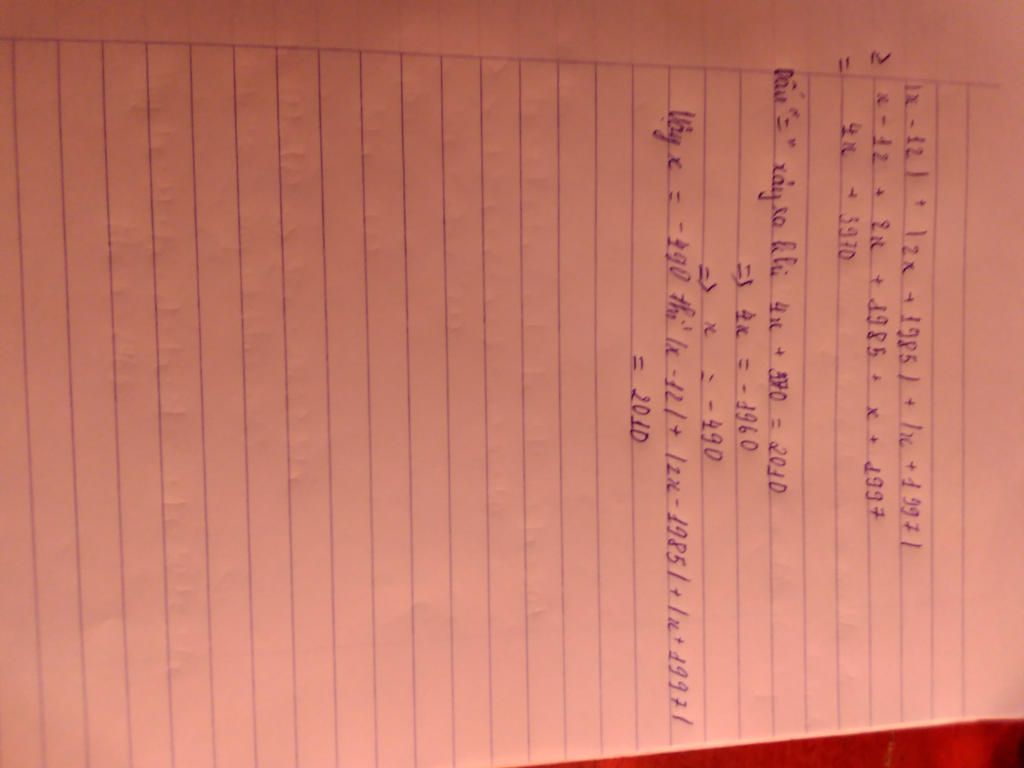 |x - 12| + |2x + 1985| + |x + 1997|
≥ x - 12 + 2x + 1985 + x + 1997
= 4x + 3970
Dấu "=" xảy ra khi 4x + 3970 = 2010
=> 4x = -1960
=> x = -490
Vậy x = -490 thì |x - 12| + |2x - 1985| + |x + 1997|
= 2010